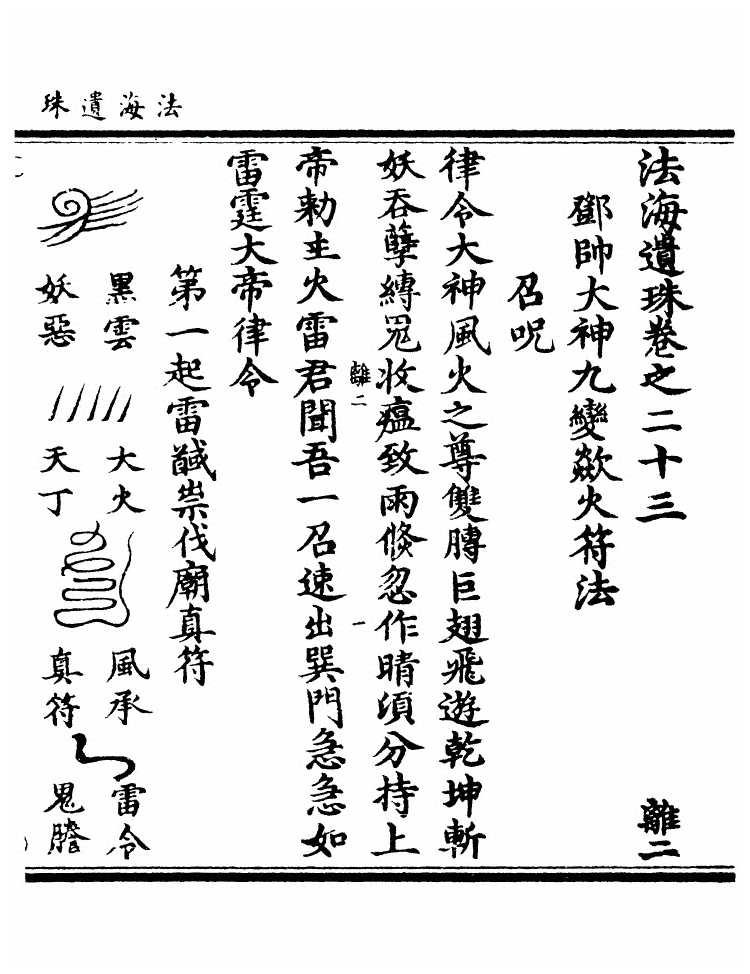 法海遺珠
法海遺珠卷之二十三 離二
鄧帥大神九變歘火符法
召呪
律令大神風火之尊雙膊巨翅飛遊乾坤斬
妖吞孽縛鬼收瘟致雨倐忽作晴湏分持上
離二 一
帝勑主火雷君聞吾一召速出巽門急急如
雷霆大帝律令
第一起雷馘祟伐廟真符
黑雲 大火 風承 雷令
妖惡 天丁 真符 鬼膽